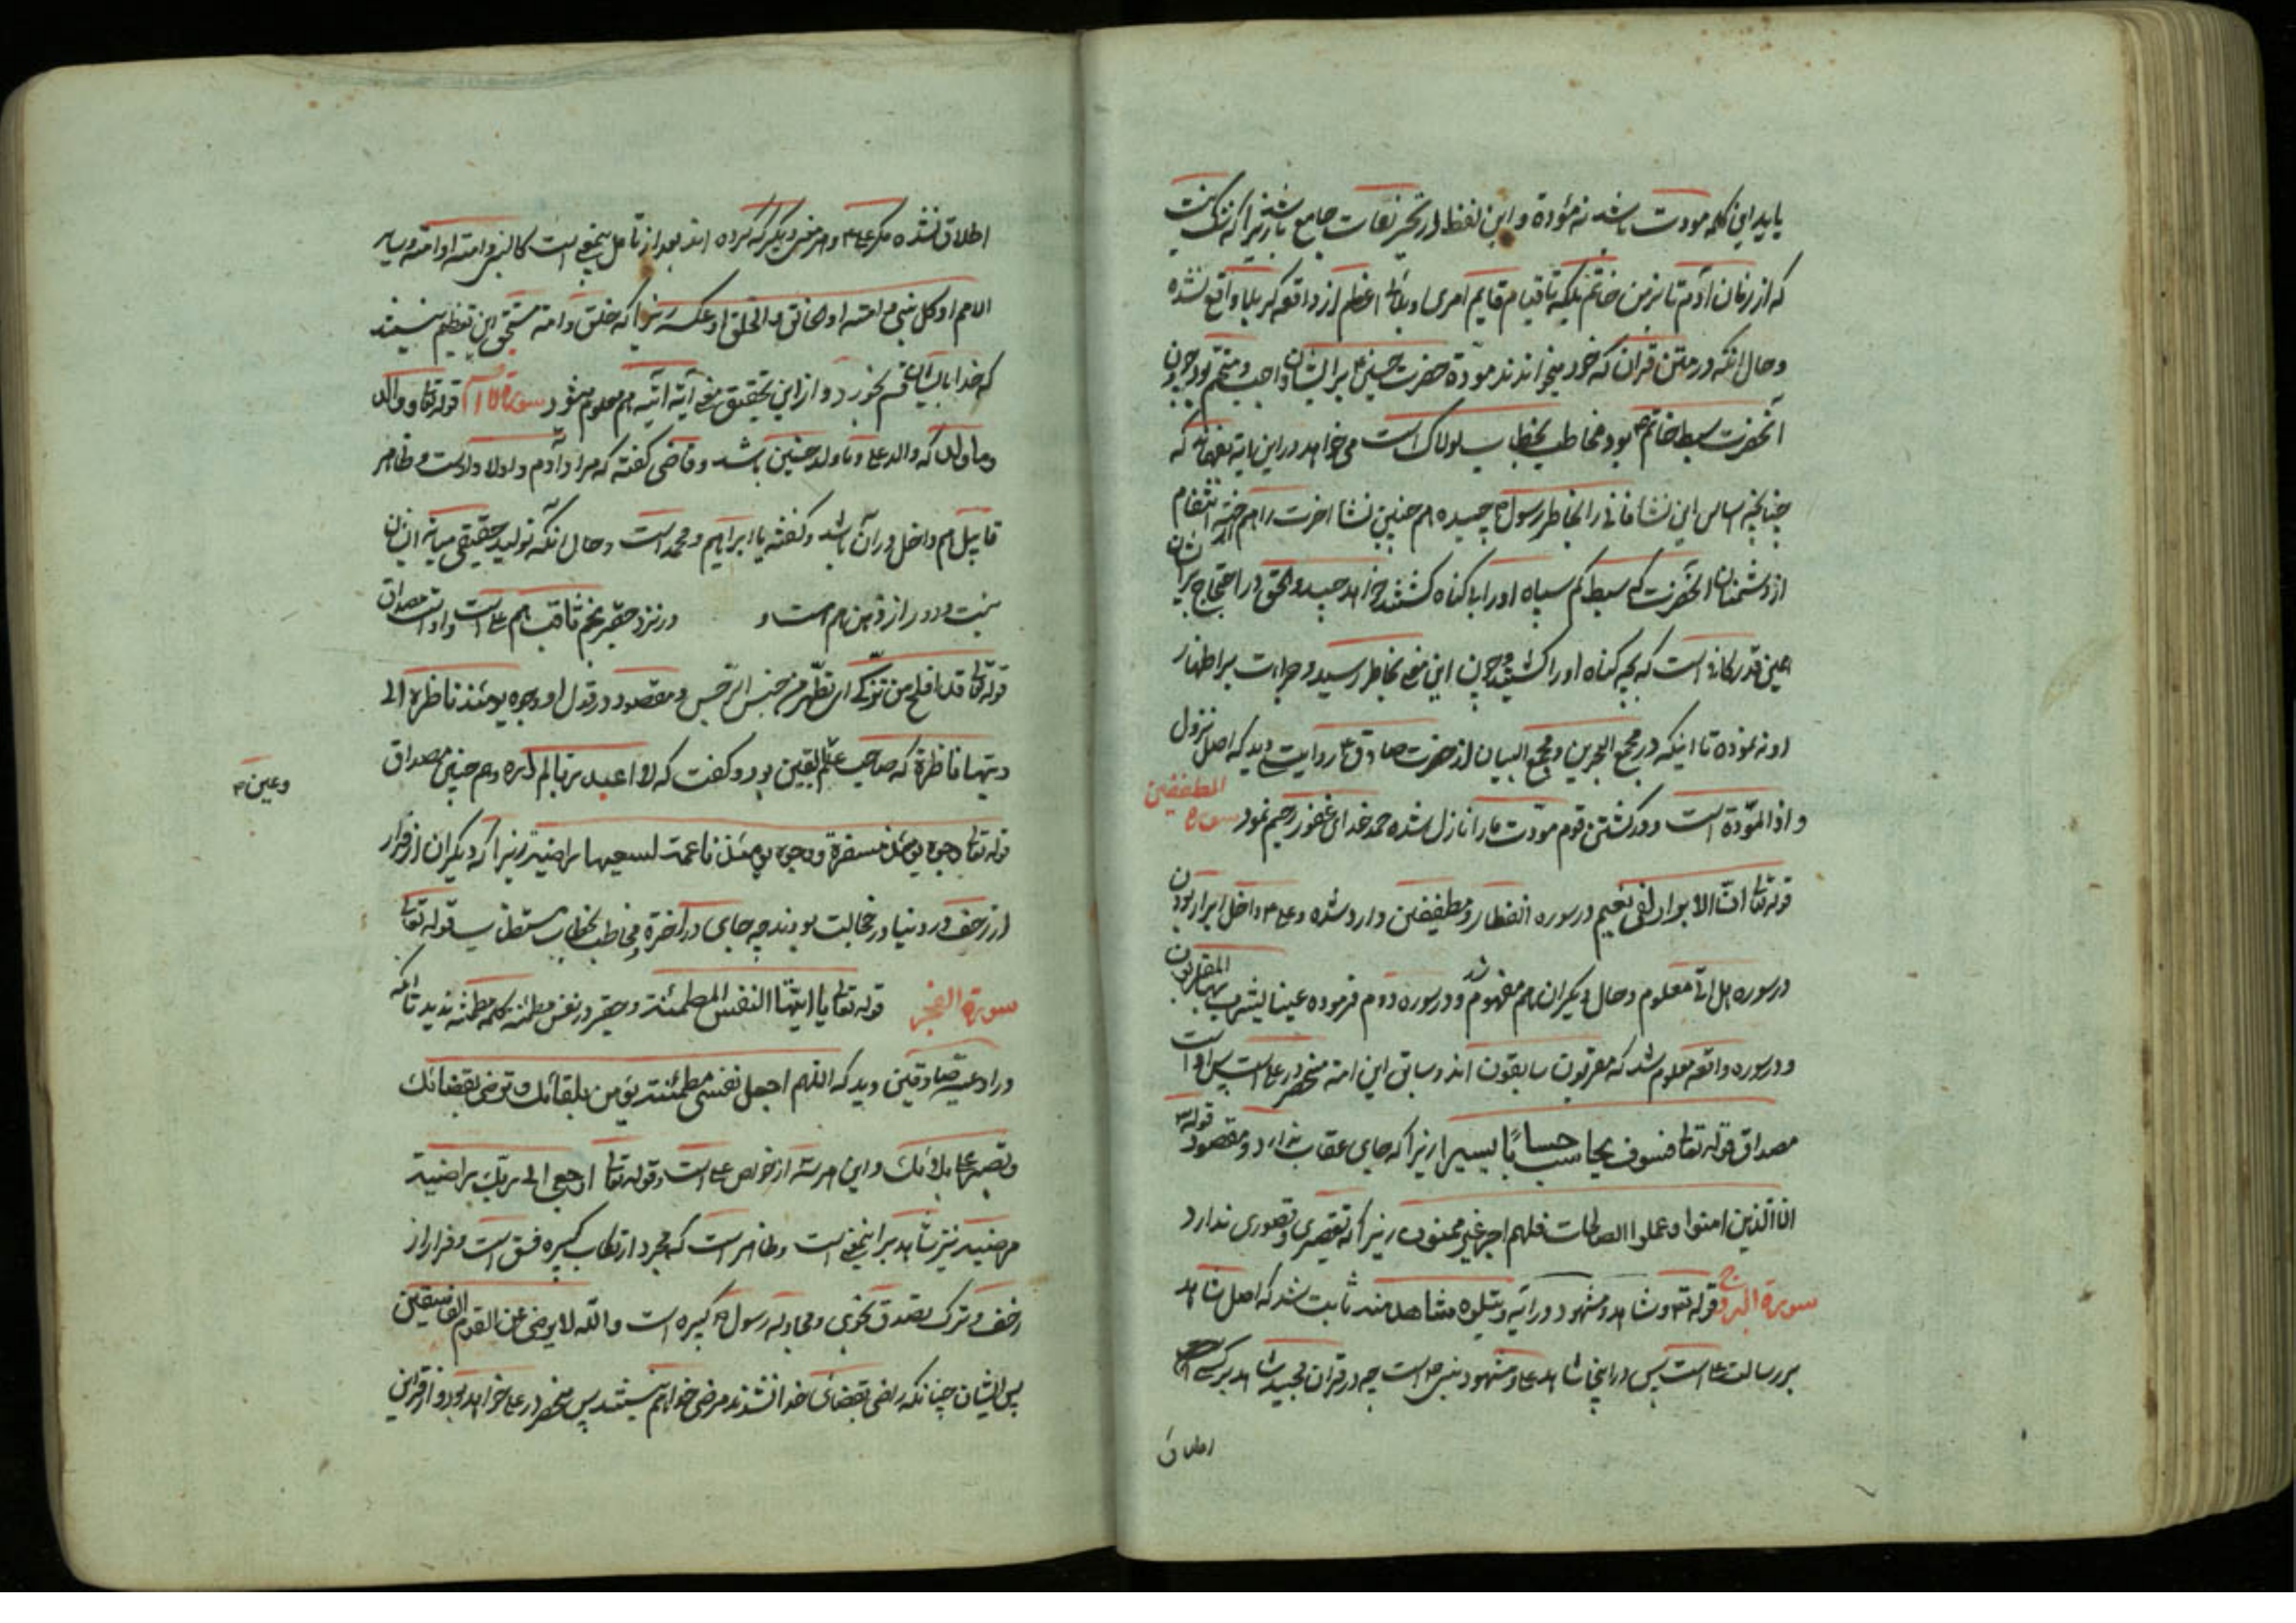 باید این کلمه مودت باشد نه مؤدة و این لفظ در نحر نعات جامع باشد زیرا که
که از زمان آدم تا زمن خاتم بلکه تا قیام قایم امری و بلائی اعظم از واقعه کربلا واقع نشده
و حال انکه در متن قران که خود میخوانند مودّة حضرت حسین بر ایشان واجب و متحتم بود چون
آنحضرت سبط خاتم بود مخاطب بخطاب لولاک است می خواهد در این بابه که
چنانچه اساس این نشا فانی را بخاطر رسول چیده هم چنین نشا اخرت را هم انتقام
از دشمنان انحضرت که سبط کم سپاه او را با کناه کشتند خواهد و الحق در احتجاج بر ایشان
همین قدر کافی است که بچه کناه او را کشتید و چون این معنی بخاطر رسید و جراءت بر اظهار
او نه نموده تا اینکه در مجمع البحرین و مجمع البیان از حضرت صادق روایت دید که اصل نزول
و اذا المودّة است و در کشتن قوم مودّت ما را نازل شده حمد خدای غفور رحیم نمود سورة المطففین
قوله تعالی انّ الابرار لفی نعیم در سوره انفطار و مطففین وارد شده و علی داخل ابرار بودن
در سوره هل اتی معلوم و حال دیکران هم مفهوم شد و در سوره دوم فرموده عینا یشرب بها المقربون
و در سوره واقعه معلوم شد که مقربون سابقون اند و سابق این امة منحصر در علی است پس او است
مصداق قوله تعالی فسوف یحاسب حسابًا یسیرا زیرا که جای عقاب ندارد و مقصود قوله
الا الذین امنوا و عملوا الصالحات فلهم اجر غیر ممنون زیرا که تقصیری و قصوری ندارد
سورة البروج قوله و شاهد و مشهود در آیه و یتلوه شاهد منه ثابت شد که اصل شاهد
بر رسالت علی است پس در اینجا شاهد علی و مشهود نبی است چه در قران مجید شاهد بر کسی
اطلاق
اطلاق نشده مکر علی و هر مفسر دیکر که کرده اند بعد از تامل است کالنبی و امته او امته و سایر
الامم او کل نبی و امته او الخالق و الخلق او عکسه زیرا که خلق و امة مستحق این تعظیم نیستند
که خدا بایشان قسم خورد و از این تحقیق معنی آیه آتیه هم معلوم میشود سورة قوله تعالی و والد
و ما ولد که والد علی و ما ولد حسنین باشد و قاضی کفته که مراد آدم و اولاد اوست و ظاهر
قابیل هم داخل در آن باشد و کفته یا ابراهیم و محمد است و حال آنکه تولید حقیقی میانه ایشان
نیست و دور از ذهن هم است و در نزد حقیر نجم ثاقب هم علی است و اوست مصداق
قوله تعالی قد افلح من تزکّی ای تطهّر من جنس الرجس و مقصود در قول او وجوه یومئذ ناظرة الی
ربّها ناظرة که صاحب علم الیقین بود و کفت که لا اعبد ربّا لم اره و هم چنین مصداق
و عین
قوله تعالی وجوه یومئذ مسفرة و وجوه یومئذ ناعمة لسعیها راضیة زیرا که دیکران از فرار
از زحف در دنیا در خجالت بودند چه جای در اخرة و مخاطب بخطاب مستطاب قوله تعالی
سورة الفجر قوله تعالی یا ایّتها النفس المطمئنة و حقیر در نفس مطمئنه کلمه مطمئنه ندید تا آنکه
در ادعیه صادقین دید که اللهم اجعل نفسی مطمئنة تؤمن بلقائک و ترضی بقضائک
و تصبر علی بلائک و این هر سه از خواص علی است و قوله تعالی ارجعی الی ربّک راضیة
مرضیة نیز شاهد بر اینمعنی است و ظاهر است که مجرد ارتکاب کبیره فسق است و فرار از
زحف و ترک تصدق نجوی و مجادله رسول کبیره است و الله لا یرضی عن القوم الفاسقین
پس ایشان چنانکه راضی بقضای خدا نشدند مرضی خدا هم نیستند پس منحصر در علی خواهد بود و از قراین